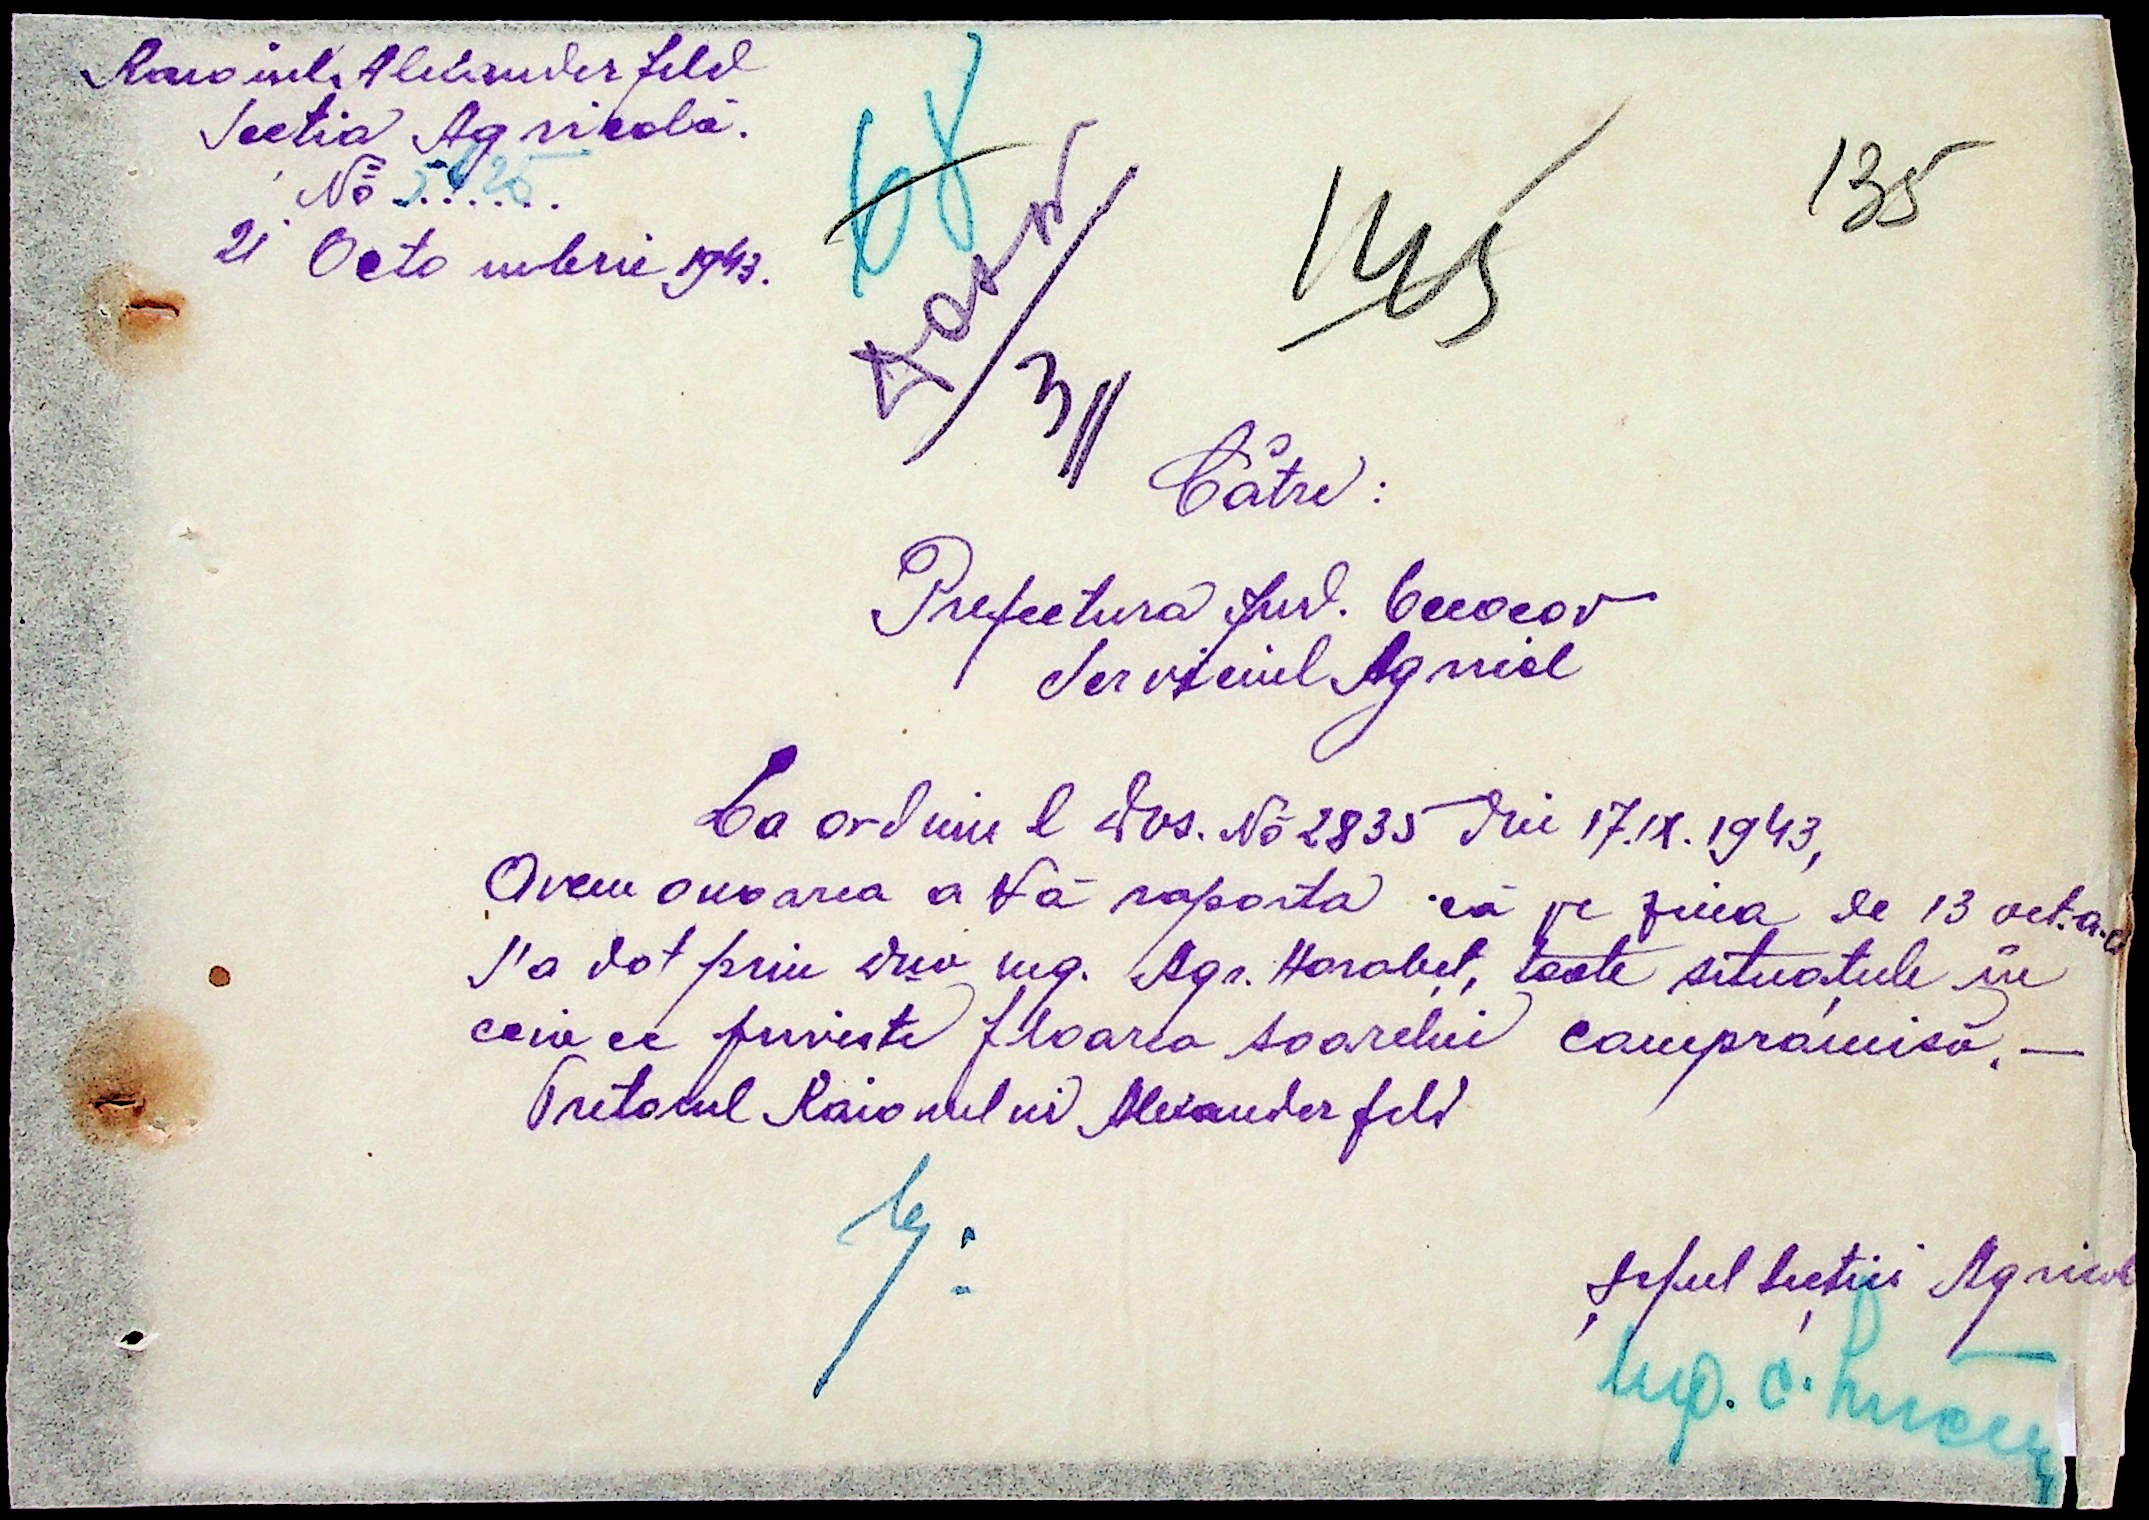 Raionul Alexanderfeld
Secția Agricolă.
No 5420
21 Octombrie 1943.
68
Dosar
3/II
145
135
Către:
Prefectura Jud. Oceacov
Serviciul Agricol
La ordinul Dvs. No 2835 din 17.IX.1943,
Avem onoarea a Vă raporta că pe ziua de 13 oct. a.c.
s'a dat prin dnu ing. Agr. Harabeț, toate situațiile în
ceia ce priveste floarea soarelui compromisă. —
Pretorul Raionului Alexanderfeld
Șeful Secției Agricole
Ing. C.